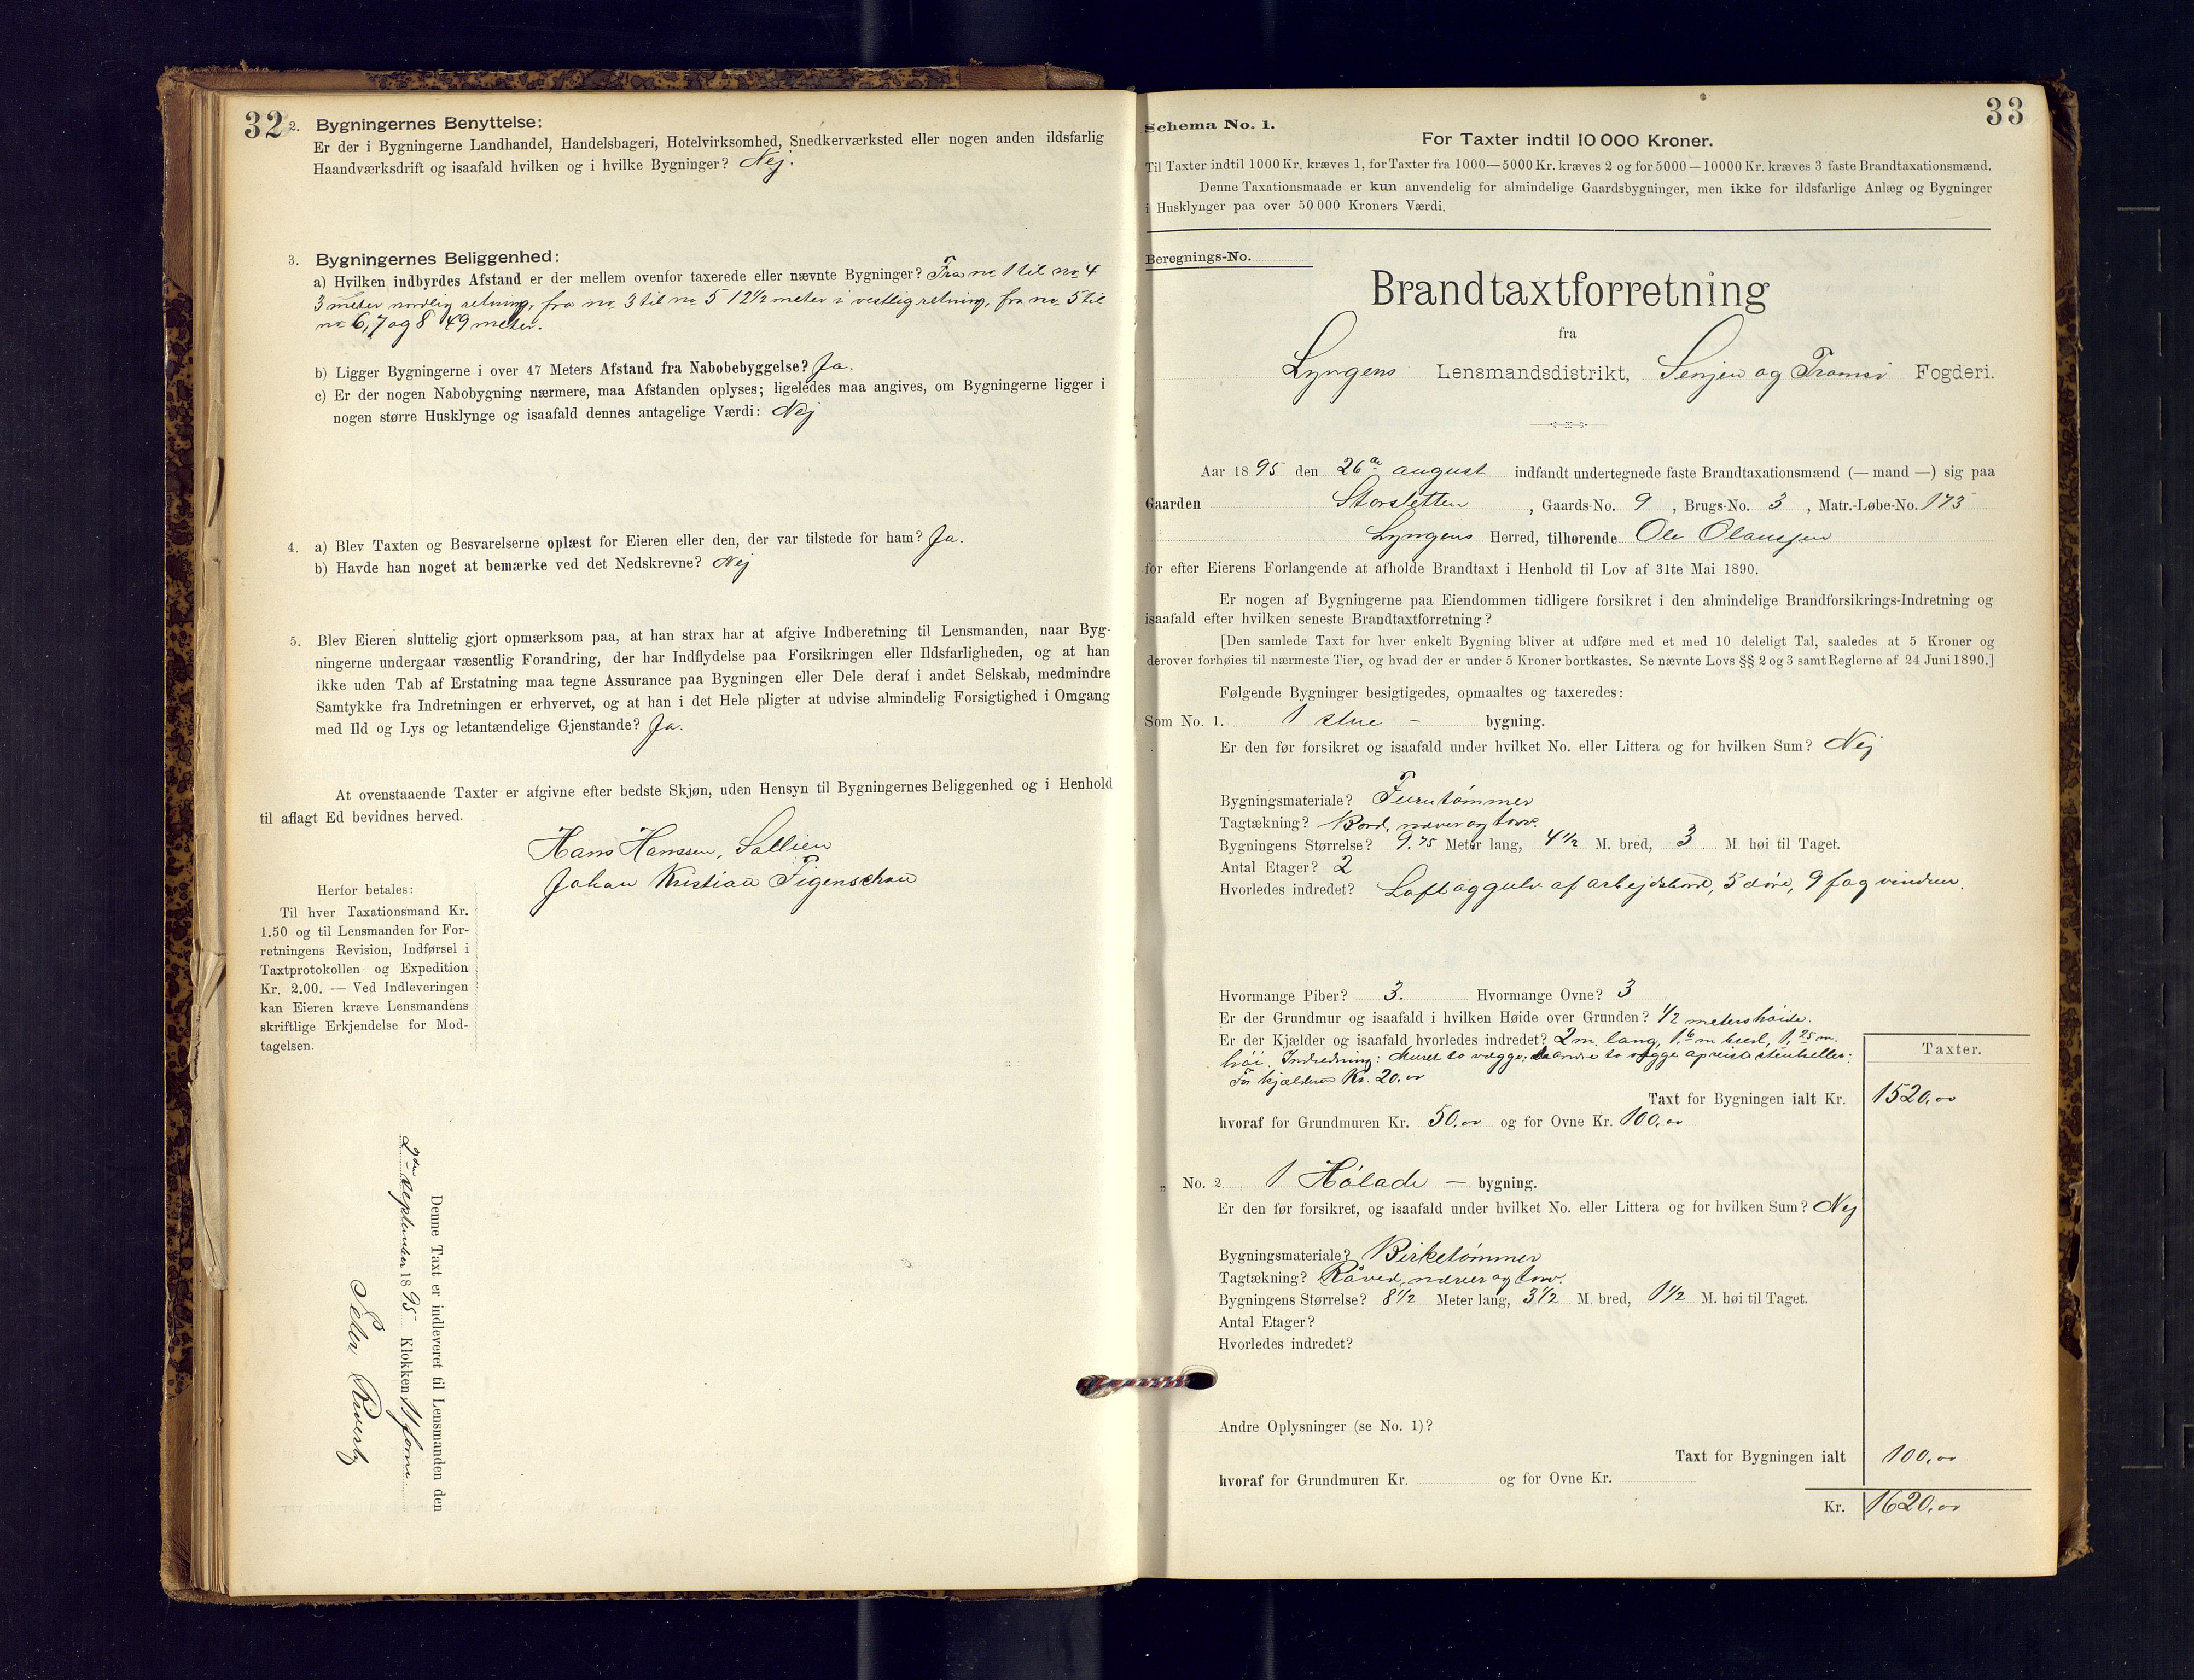 32
2. Bygningernes Benyttelse:
Er der i Bygningerne Landhandel, Handelsbageri, Hotelvirksomhed, Snedkerværksted eller nogen anden ildsfarlig
Haandværksdrift og isaafald hvilken og i hvilke Bygninger? Nej.
3. Bygningernes Beliggenhed:
a) Hvilken indbyrdes Afstand er der mellem ovenfor taxerede eller nævnte Bygninger? Fra no 1 til no 4
3 meter nordlig retning, fra no. 3 til no 5 12 1/2 meter i vestlig retning, fra no 5 til
no 6, 7 og 8 49 meter.
b) Ligger Bygningerne i over 47 Meters Afstand fra Nabobebyggelse? Ja.
c) Er der nogen Nabobygning nærmere, maa Afstanden oplyses; ligeledes maa angives, om Bygningerne ligger i
nogen større Husklynge og isaafald dennes antagelige Værdi: Nej
4. a) Blev Taxten og Besvarelserne oplæst for Eieren eller den, der var tilstede for ham? Ja.
b) Havde han noget at bemærke ved det Nedskrevne? Nej
5. Blev Eieren sluttelig gjort opmærksom paa, at han strax har at afgive Indberetning til Lensmanden, naar Byg-
ningerne undergaar væsentlig Forandring, der har Indflydelse paa Forsikringen eller Ildsfarligheden, og at han
ikke uden Tab af Erstatning maa tegne Assurance paa Bygningen eller Dele deraf i andet Selskab, medmindre
Samtykke fra Indretningen er erhvervet, og at han i det Hele pligter at udvise almindelig Forsigtighed i Omgang
med Ild og Lys og letantændelige Gjenstande? Ja.
At ovenstaaende Taxter er afgivne efter bedste Skjøn, uden Hensyn til Bygningernes Beliggenhed og i Henhold
til aflagt Ed bevidnes herved.
Hans Hanssen, Sollien
Johan Kristian Figenschau
Herfor betales:
Til hver Taxationsmand Kr.
1.50 og til Lensmanden for For-
retningens Revision, Indførsel i
Taxtprotokollen og Expedition
Kr. 2.00. — Ved Indleveringen
kan Eieren kræve Lensmandens
skriftlige Erkjendelse for Mod-
tagelsen.
Denne Taxt er indleveret til Lensmanden den
2den september 1895 Klokken 11 form.
Peder
33
Schema No. 1.
For Taxter indtil 10 000 Kroner.
Til Taxter indtil 1000 Kr. kræves 1, for Taxter fra 1000—5000 Kr. kræves 2 og for 5000—10000 Kr. kræves 3 faste Brandtaxationsmænd.
Denne Taxationsmaade er kun anvendelig for almindelige Gaardsbygninger, men ikke for ildsfarlige Anlæg og Bygninger
i Husklynger paa over 50 000 Kroners Værdi.
Beregnings-No.
Brandtaxtforretning
fra
Lyngens Lensmandsdistrikt, Senjen og Tromsø Fogderi.
Aar 1895 den 26de august indfandt undertegnede faste Brandtaxationsmænd (— mand —) sig paa
Gaarden Storsletten, Gaards-No. 9, Brugs-No. 3, Matr.-Løbe-No. 173
Lyngens Herred, tilhørende Ole Olaussen
for efter Eierens Forlangende at afholde Brandtaxt i Henhold til Lov af 31te Mai 1890.
Er nogen af Bygningerne paa Eiendommen tidligere forsikret i den almindelige Brandforsikrings-Indretning og
isaafald efter hvilken seneste Brandtaxtforretning?
[Den samlede Taxt for hver enkelt Bygning bliver at udføre med et med 10 deleligt Tal, saaledes at 5 Kroner og
derover forhøies til nærmeste Tier, og hvad der er under 5 Kroner bortkastes. Se nævnte Lovs §§ 2 og 3 samt Reglerne af 24 Juni 1890.]
Følgende Bygninger besigtigedes, opmaaltes og taxeredes:
Som No. 1. 1 stue — bygning.
Er den før forsikret og isaafald under hvilket No. eller Littera og for hvilken Sum? Nej
Bygningsmateriale? Furutømmer
Tagtækning? Bord, næver og torv.
Bygningens Størrelse? 9.75 Meter lang, 4 1/2 M. bred, 3 M. høi til Taget.
Antal Etager? 2
Hvorledes indredet? Loft og gulv af arbejdsbord, 5 døre, 9 fag vinduer.
Hvormange Piber? 3. Hvormange Ovne? 3
Er der Grundmur og isaafald i hvilken Høide over Grunden? 1/2 meters høide.
Er der Kjælder og isaafald hvorledes indredet? 2 m. lang, 1.6 m bred, 1.25 m.
høi. Indredning: Muret to vægge, de andre to vægge opreist stenheller.
For kjælderen Kr. 20.00
Taxter.
Taxt for Bygningen ialt Kr. 1520.00
hvoraf for Grundmuren Kr. 50.00 og for Ovne Kr. 100.00
„ No. 2. 1 Hølade — bygning.
Er den før forsikret, og isaafald under hvilket No. eller Littera og for hvilken Sum? Nej
Bygningsmateriale? Birketømmer
Tagtækning? Råved, næver og torv.
Bygningens Størrelse? 8 1/2 Meter lang, 3 1/2 M. bred, 1 1/2 M. høi til Taget.
Antal Etager?
Hvorledes indredet?
Andre Oplysninger (se No. 1)?
Taxt for Bygningen ialt 100.00
hvoraf for Grundmuren Kr. og for Ovne Kr.
Kr. 1620.00